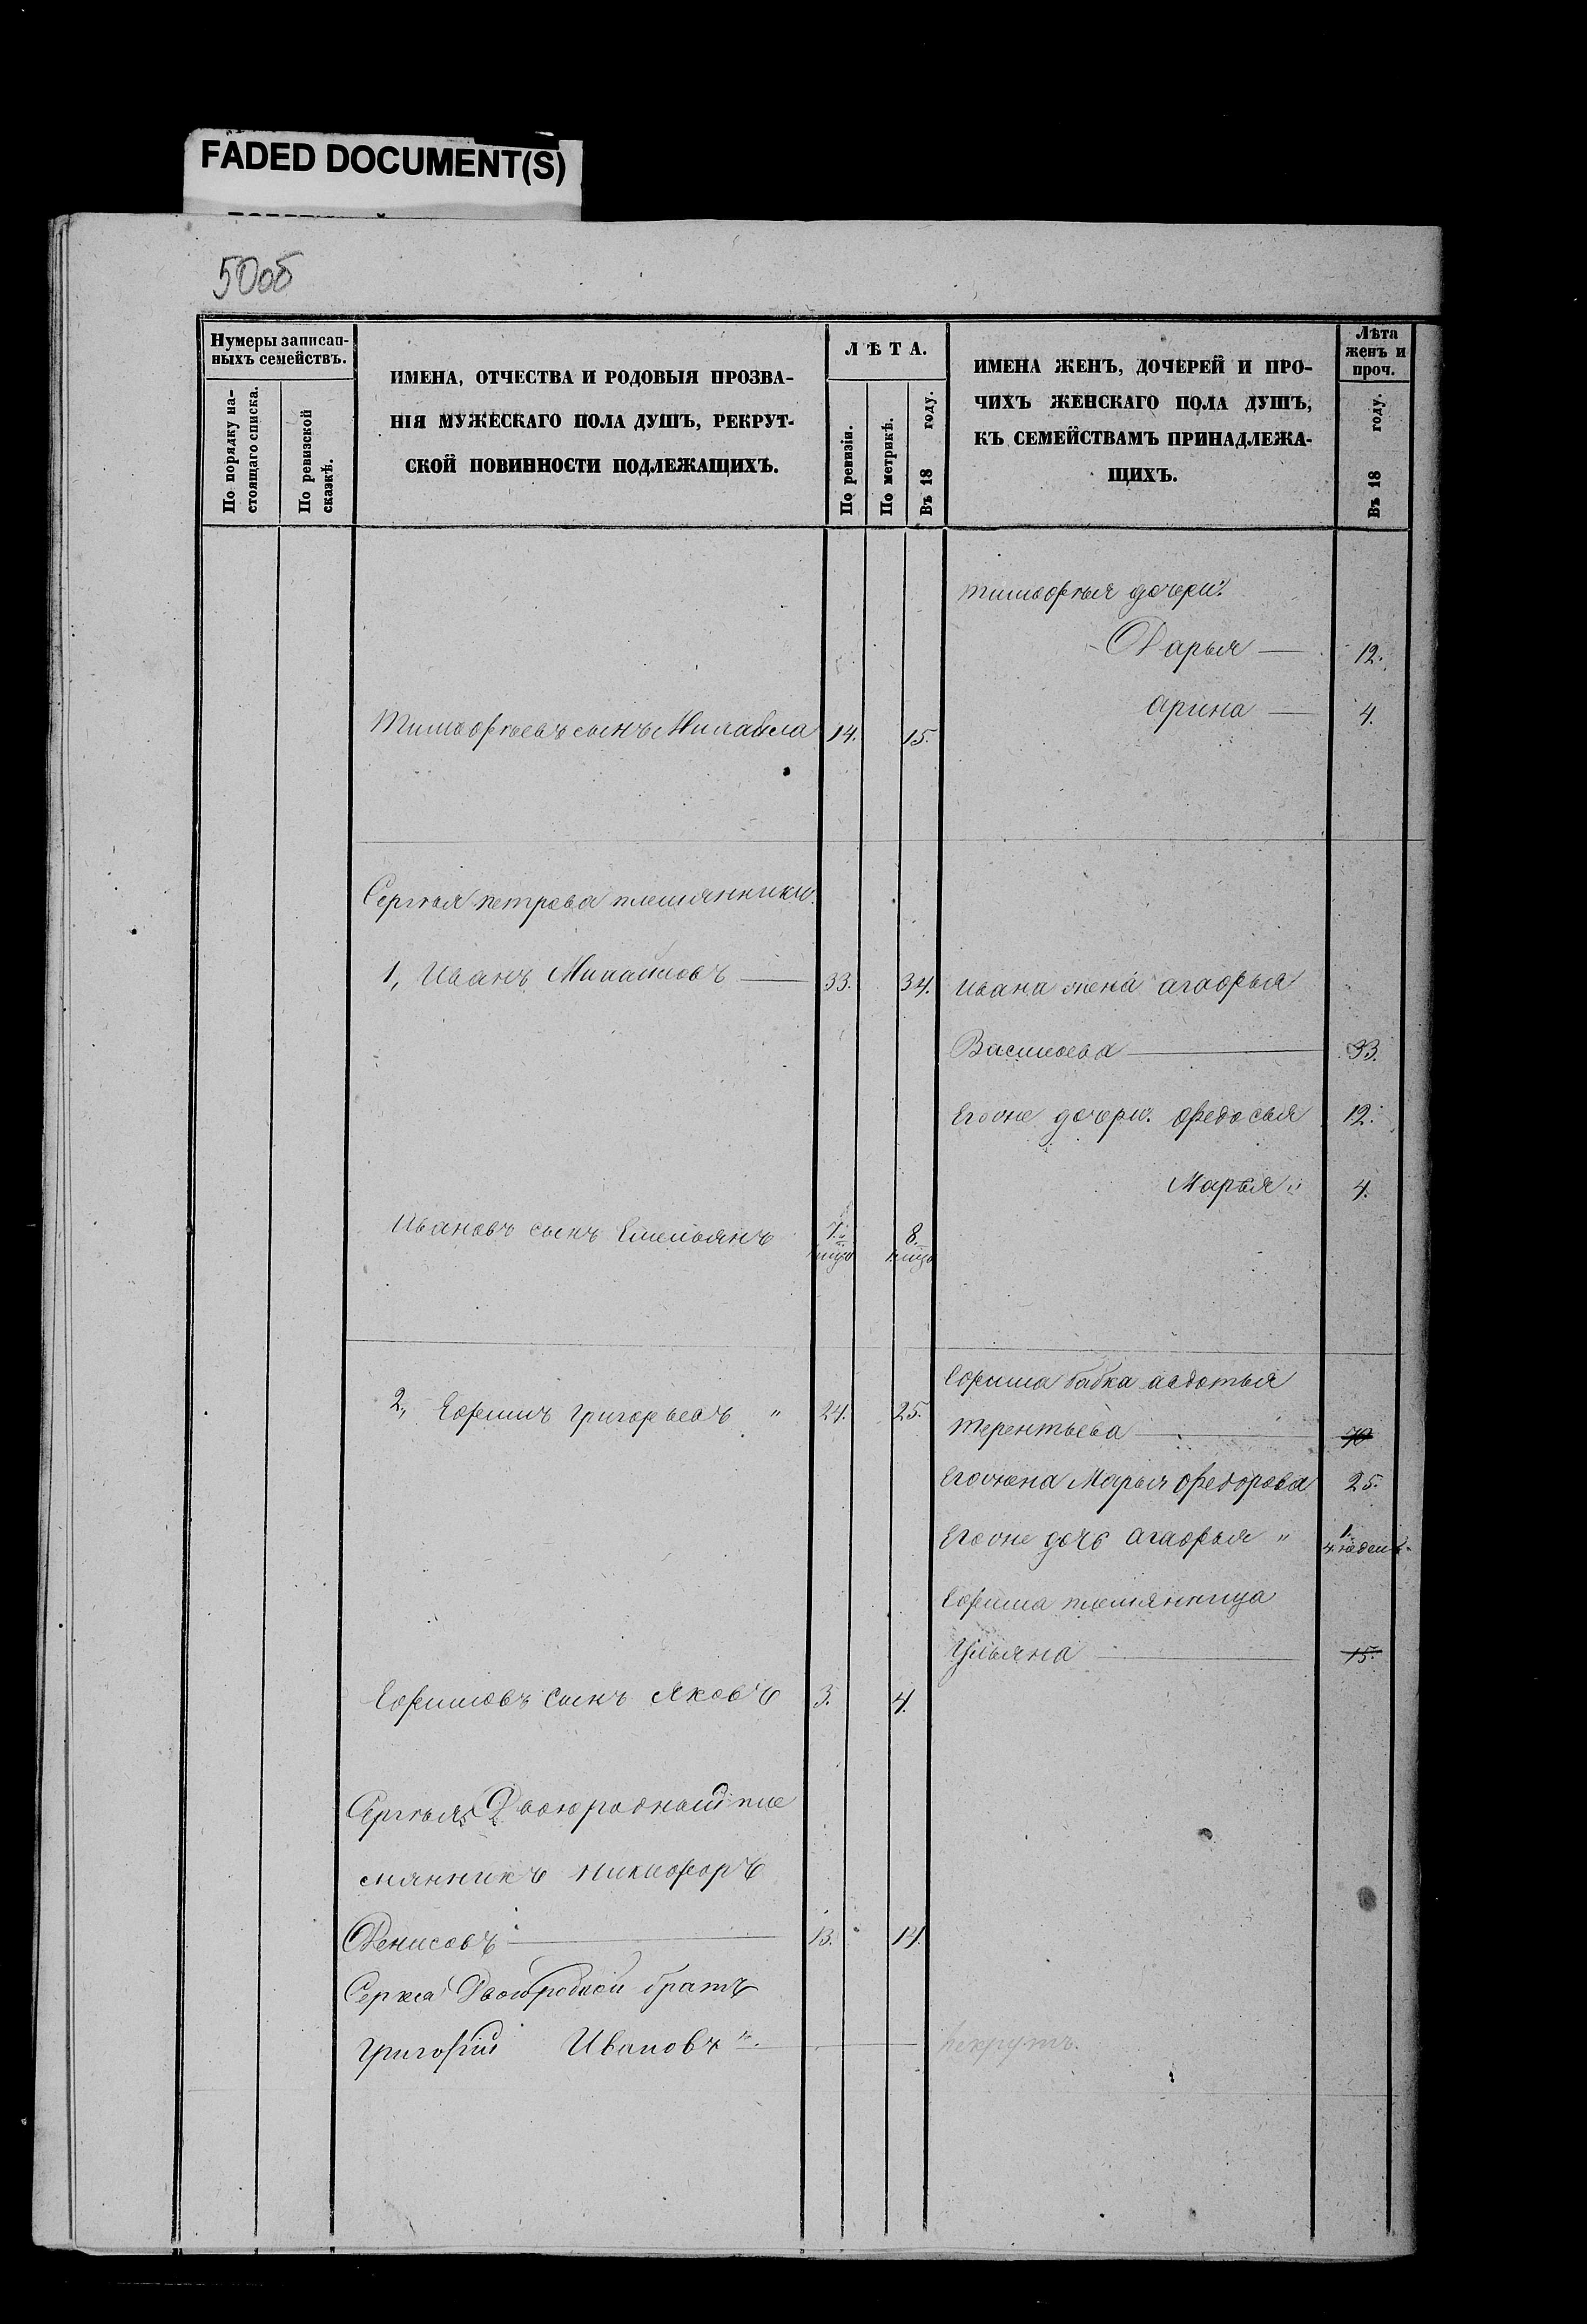 FADED DOCUMENT(S)
50об
Нумеры записан-
ныхъ семействъ.
По порядку на-
стоящаго списка.
По ревизской
сказкѣ.
ИМЕНА, ОТЧЕСТВА И РОДОВЫЯ ПРОЗВА-
НІЯ МУЖЕСКАГО ПОЛА ДУШЪ, РЕКРУТ-
СКОЙ ПОВИННОСТИ ПОДЛЕЖАЩИХЪ.
ЛѢТА.
По ревизіи.
По метрикѣ.
Въ 18 году.
ИМЕНА ЖЕНЪ, ДОЧЕРЕЙ И ПРО-
ЧИХЪ ЖЕНСКАГО ПОЛА ДУШЪ,
КЪ СЕМЕЙСТВАМЪ ПРИНАДЛЕЖА-
ЩИХЪ.
Лѣта
женъ и
проч.
Въ 18 году.
тимофѣя дочери:
Дарья — 12.
арина — 4.
Тимофѣевъ сынъ Михаила 14. 15.
Сергѣя петрова племянники
1, Иванъ Михайловъ — 33. 34. ивана жена агафья
Васильева — 33.
Егоже дочери. федосья 12.
Марья " 4.
Ивановъ сынъ Емельянъ 7. 8.
Ефима бабка авдотья
2, Ефимъ григорьевъ " 24. 25.
терентьева — 70
Егожена Марья федорова 25.
Егоже дочь агафья " 1.
4. недель
Ефима племянница
Ульяна — 15.
Ефимовъ сынъ яковъ 3. 4.
Сергѣя Двоюродный пле
мянникъ никифоръ
Денисовъ — 13. 14.
Сергея Двоюродной братъ
григорій Ивановъ " — рекрутъ.